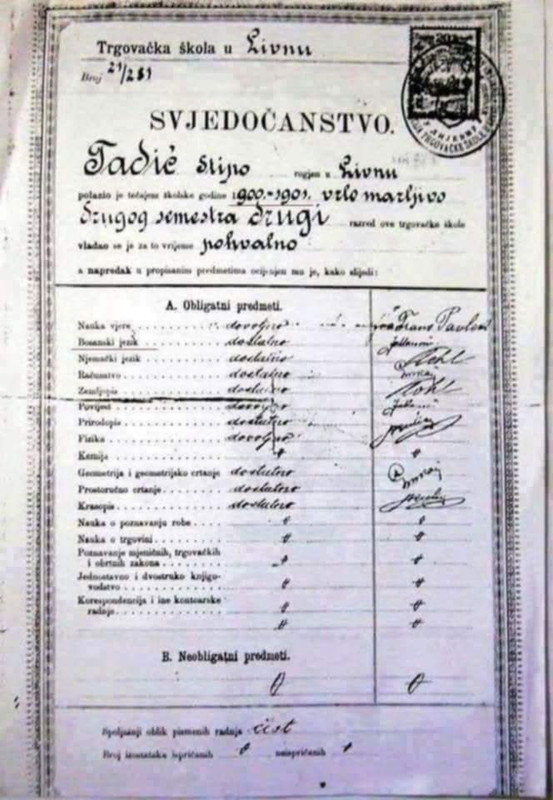 Trgovačka škola u Livnu
Broj 21/281
SVJEDOČANSTVO.
Tadić Stipo rogjen u Livnu
polazio je tečajem školske godine 1900.-1901. vrlo marljivo
drugog semestra drugi razred ove trgovačke škole
vladao se je za to vrijeme pohvalno
a napredak u propisanim predmetima ocijenjen mu je, kako slijedi:
A. Obligatni predmeti.
Nauka vjere dovoljno Frano
Bosanski jezik dostatno
Njemački jezik dostatno
Računstvo dostatno
Zemljopis dostatno
Povijest dovoljno
Prirodopis dostatno
Fizika dovoljno
Kemija
Geometrija i geometrijsko crtanje dostatno
Prostoručno crtanje dostatno
Krasopis dostatno
Nauka o poznavanju robe
Nauka o trgovini
Poznavanje mjeničnih, trgovačkih
i obrtnih zakona
Jednostavno i dvostruko knjigo-
vodstvo
Korespondencija i ine kontoarske
radnje
B. Neobligatni predmeti.
Spoljašnji oblik pismenih radnja čist
Broj izostataka ispričanih neispričanih